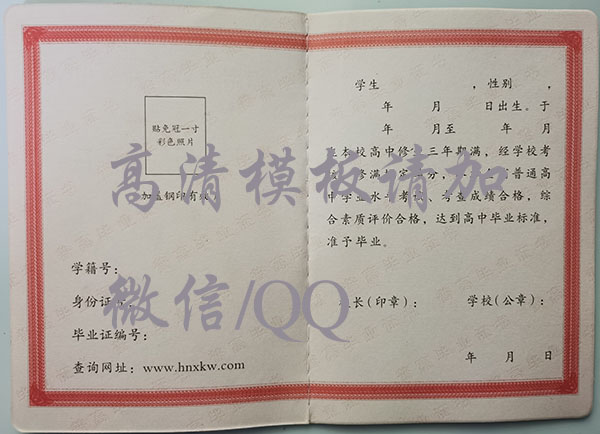 贴免冠一寸
彩色照片
加盖钢印有效
学籍号:
身份证号:
毕业证编号:
查询网址:www.hnxkw.com
学生 ,性别 ,
年 月 日出生。于
年 月至 年 月
在本校高中修业三年期满,经学校考
修满 分,
普通高
中学业水平考试、考查成绩合格,综
合素质评价合格,达到高中毕业标准,
准予毕业。
校长(印章): 学校(公章):
年 月 日
高清模板请加
微信/QQ